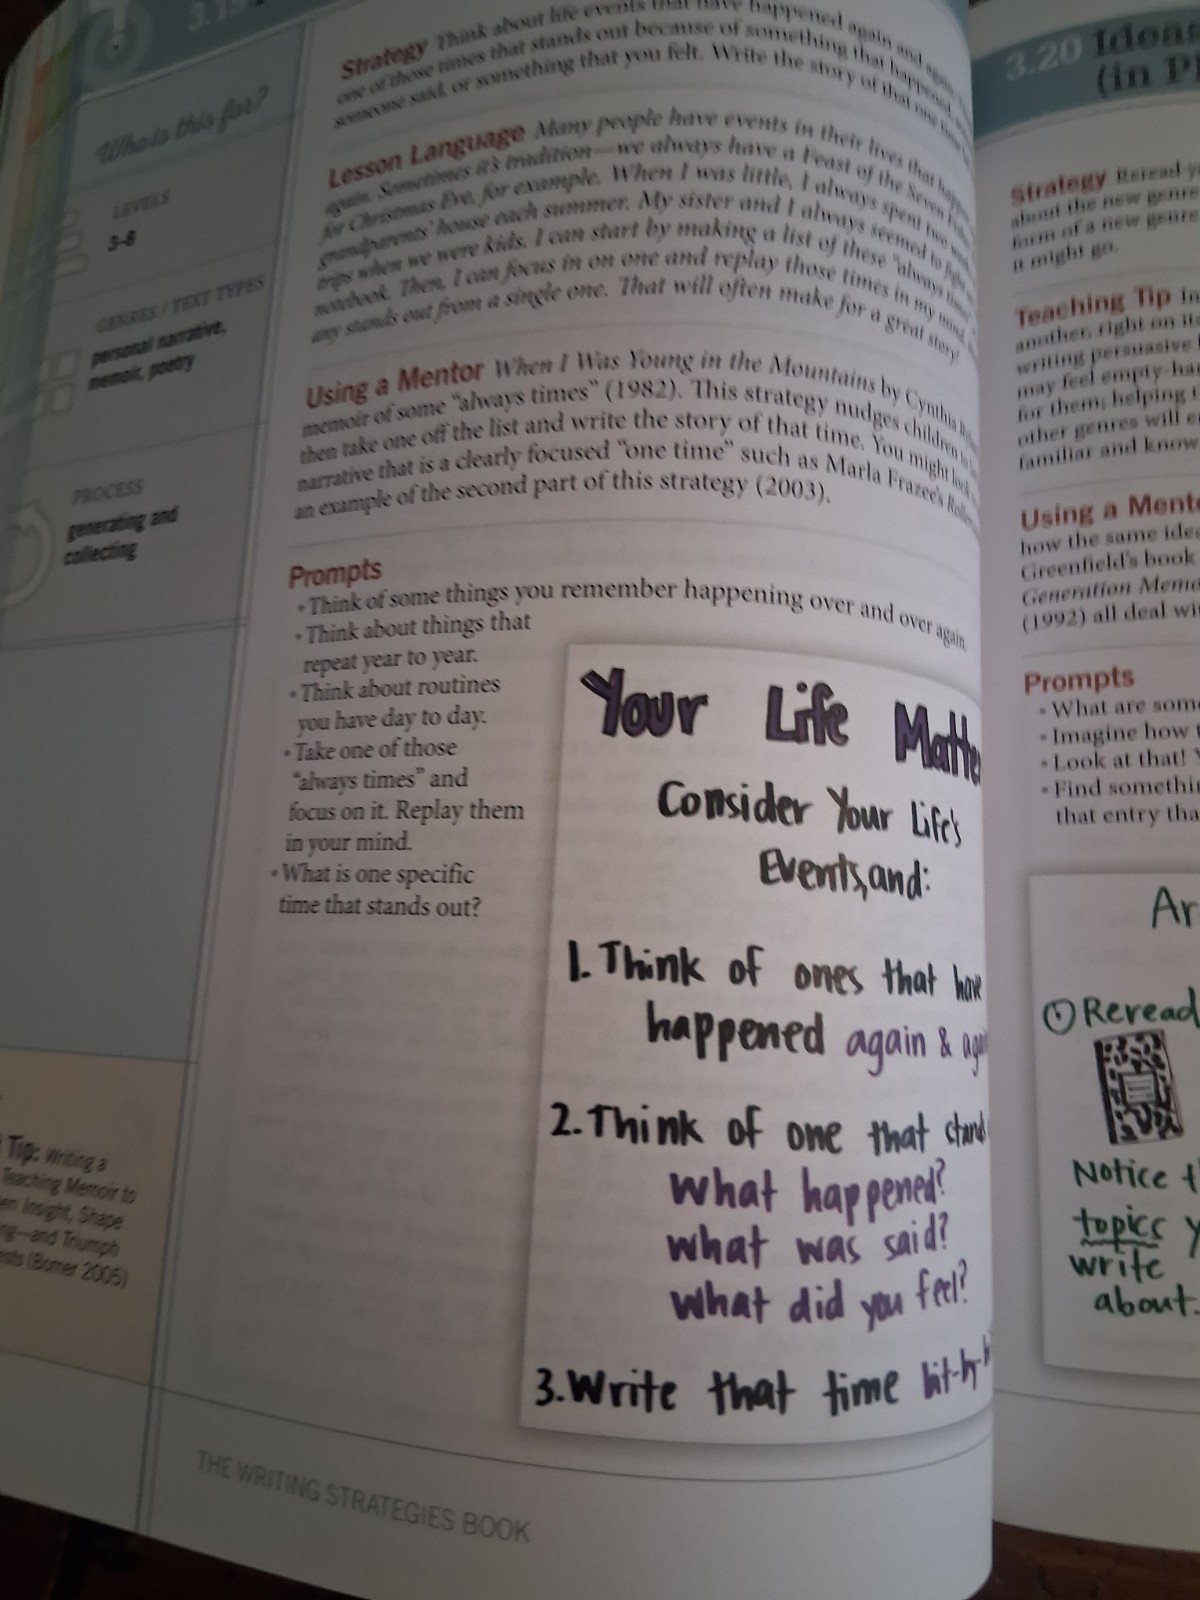 3.19
Who is this for?
LEVELS
3–8
GENRES / TEXT TYPES
personal narrative,
memoir, poetry
PROCESS
generating and
collecting
Tip: Writing a
Teaching Memoir to
Insight, Shape
and Triumph
(Bomer 2005)
Strategy Think about life events that have happened again and again.
one of those times that stands out because of something that happened,
someone said, or something that you felt. Write the story of that one time
Lesson Language Many people have events in their lives that happen
again. Sometimes it's tradition—we always have a Feast of the Seven
for Christmas Eve, for example. When I was little, I always spent two weeks
grandparents' house each summer. My sister and I always seemed to fight
trips when we were kids. I can start by making a list of these "always times"
notebook. Then, I can focus in on one and replay those times in my mind,
any stands out from a single one. That will often make for a great story!
Using a Mentor When I Was Young in the Mountains by Cynthia
memoir of some "always times" (1982). This strategy nudges children to
then take one off the list and write the story of that time. You might look
narrative that is a clearly focused "one time" such as Marla Frazee's
an example of the second part of this strategy (2003).
Prompts
• Think of some things you remember happening over and over again.
• Think about things that
repeat year to year.
• Think about routines
you have day to day.
• Take one of those
"always times" and
focus on it. Replay them
in your mind.
• What is one specific
time that stands out?
Your Life
Consider Your Life's
Events, and:
1. Think of ones that have
happened again &
2. Think of one that
what happened?
what was said?
what did you feel?
3. Write that time
THE WRITING STRATEGIES BOOK
3.20 Ideas
(in
Strategy Reread
about the new
form of a new
it might go.
Teaching Tip
another, right on
writing persuasive
may feel
for them; helping
other genres will
familiar and
Using a
how the same
Greenfield's book
Generation
(1992) all deal
Prompts
• What are
• Imagine how
• Look at that!
• Find
that entry
① Reread
Notice
topics
write
about.